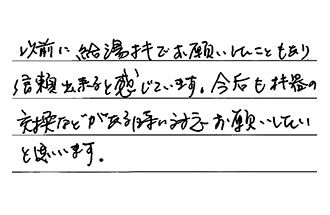 以前に給湯器でお願いしたこともあり
信頼出来ると感じています。今后も機器の
交換などがある時に対応お願いしたい
と思います。